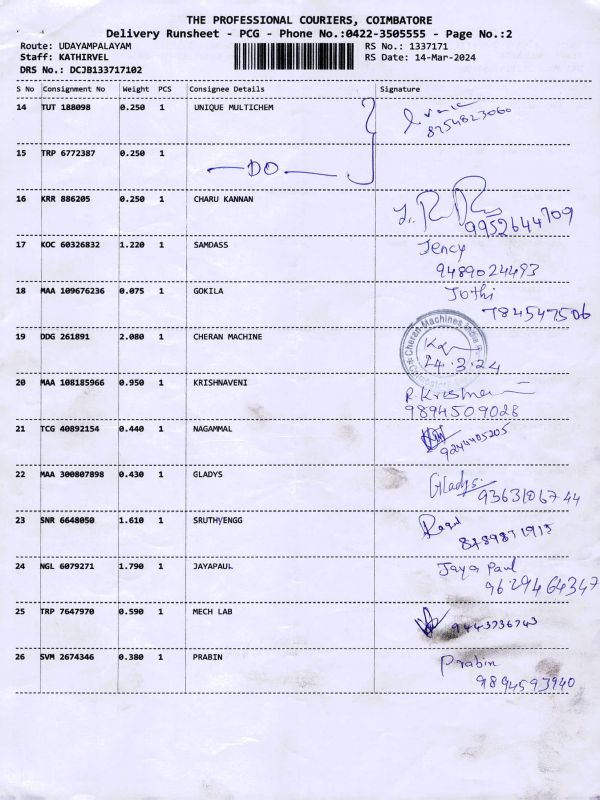 THE PROFESSIONAL COURIERS, COIMBATORE
Delivery Runsheet - PCG - Phone No.:0422-3505555 - Page No.:2
Route: UDAYAMPALAYAM RS No.: 1337171
Staff: KATHIRVEL RS Date: 14-Mar-2024
DRS No.: DCJB133717102
S No Consignment No Weight PCS Consignee Details Signature
14 TUT 188098 0.250 1 UNIQUE MULTICHEM
8754823060
15 TRP 6772387 0.250 1
DO
16 KRR 886205 0.250 1 CHARU KANNAN
9952644709
17 KOC 60326832 1.220 1 SAMDASS Jency
9489024493
18 MAA 109676236 0.075 1 GOKILA Jothi
784547506
19 DDG 261891 2.080 1 CHERAN MACHINE
Cheran Machines India
14.3.24
20 MAA 108185966 0.950 1 KRISHNAVENI
9894509028
21 TCG 40892154 0.440 1 NAGAMMAL
9244405205
22 MAA 300807898 0.430 1 GLADYS Gladys
9363106744
23 SNR 6648050 1.610 1 SRUTHYENGG
8789871915
24 NGL 6079271 1.790 1 JAYAPAUL Jaya Paul
9629464347
25 TRP 7647970 0.590 1 MECH LAB
9443736743
26 SVM 2674346 0.380 1 PRABIN Prabin
9894593940